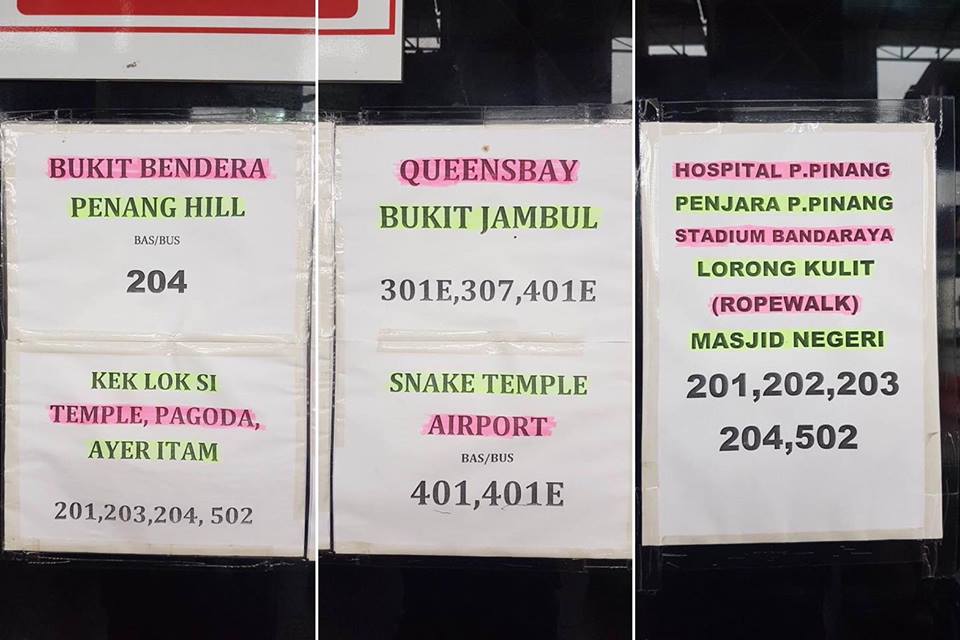 BUKIT BENDERA
PENANG HILL
BAS/BUS
204
KEK LOK SI
TEMPLE, PAGODA,
AYER ITAM
201,203,204, 502
QUEENSBAY
BUKIT JAMBUL
301E,307,401E
SNAKE TEMPLE
AIRPORT
BAS/BUS
401,401E
HOSPITAL P.PINANG
PENJARA P.PINANG
STADIUM BANDARAYA
LORONG KULIT
(ROPEWALK)
MASJID NEGERI
201,202,203
204,502